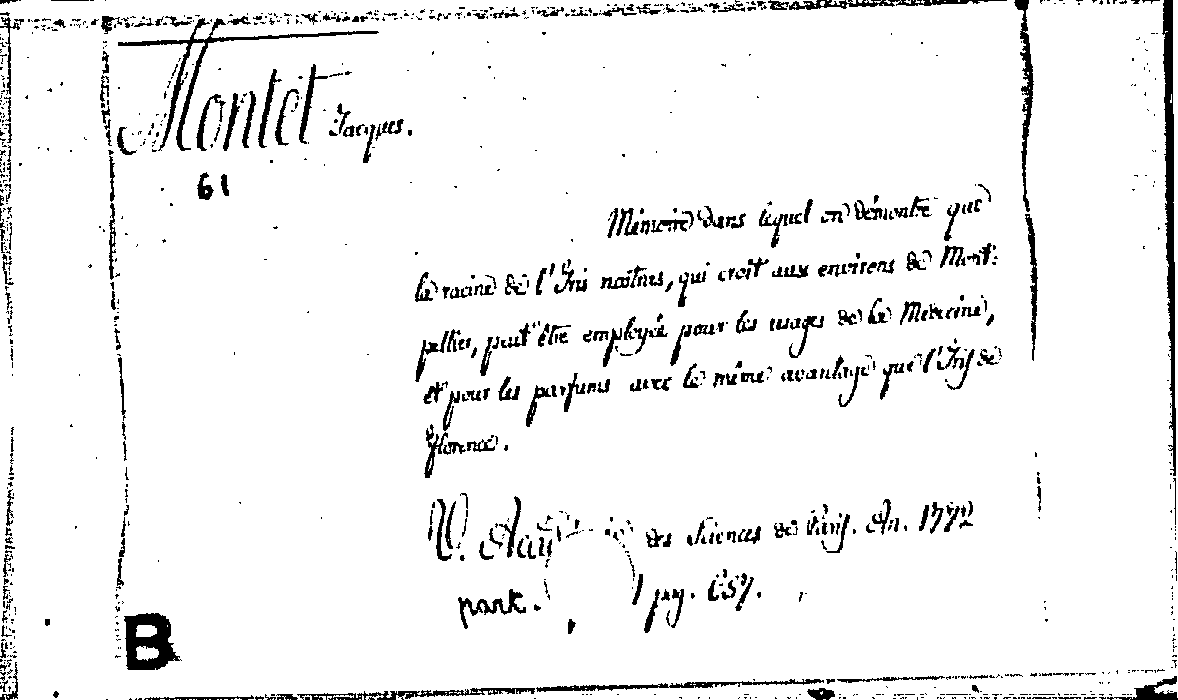 Montet Jacques.
61
Mémoire dans lequel on démontre que
la racine de l'Iris nostras, qui croît aux environs de Mont-
pellier, peut être employée pour les usages de la Médecine,
et pour les parfums avec le même avantage que l'Iris de
Florence.
V. des Sciences de Paris. An. 1772
part. pag. 657.
B